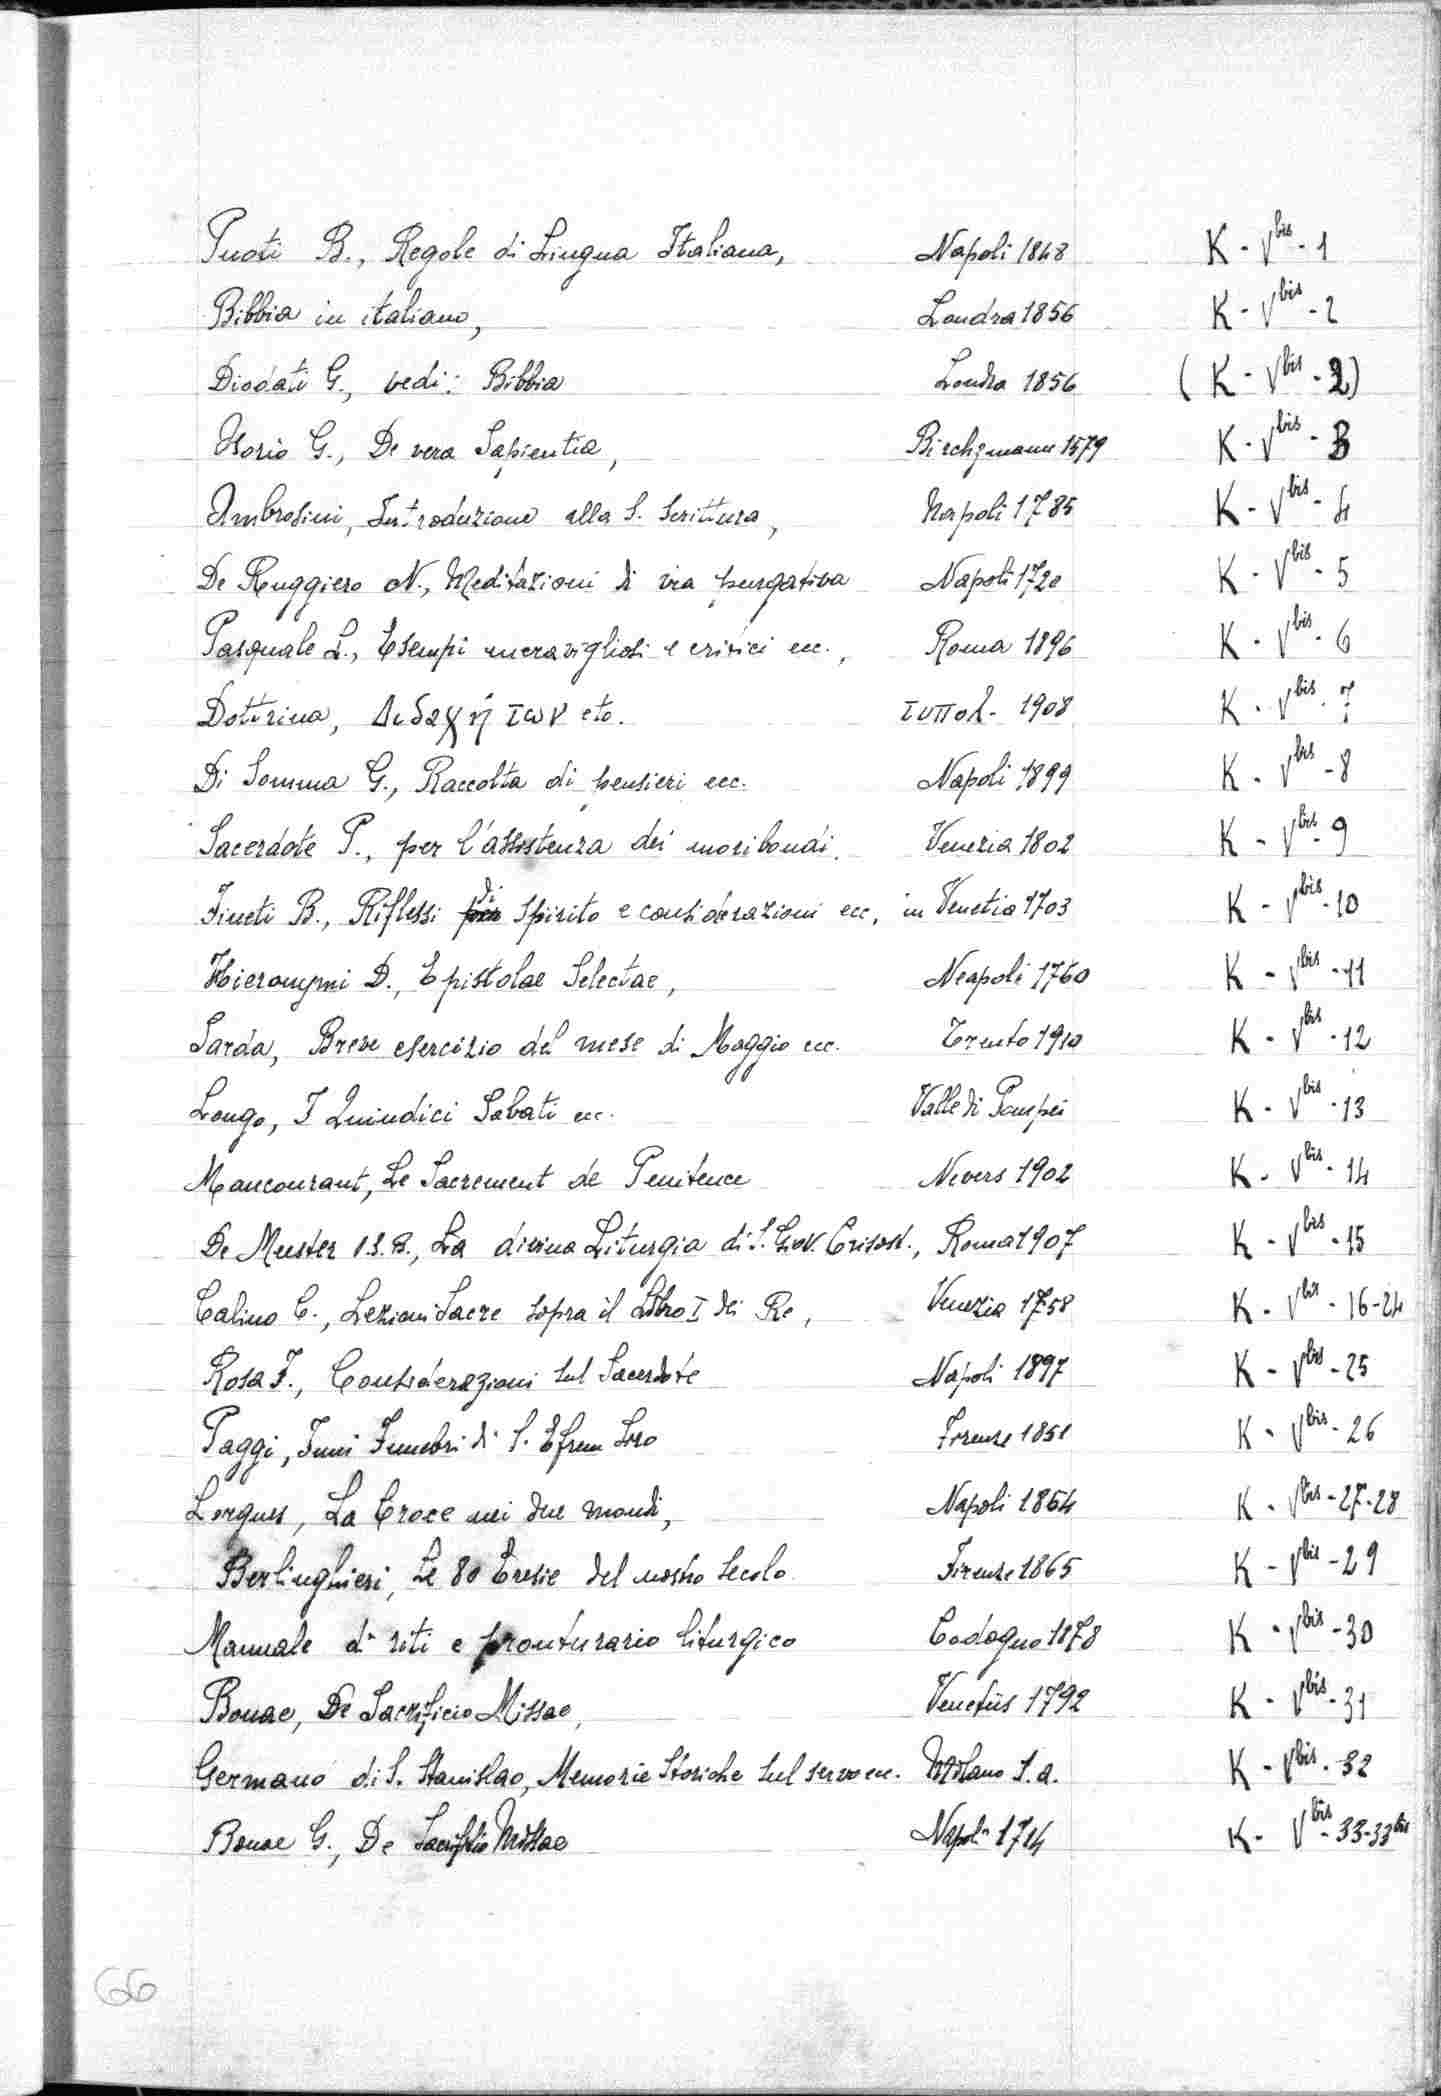 Puoti B., Regole di Lingua Italiana, Napoli 1848 K - V bis - 1
Bibbia in italiano, Londra 1856 K - V bis - 2
Diodati G., vedi: Bibbia Londra 1856 (K - V bis - 2)
Osorio G., De vera Sapientia, Birchzmann 1579 K - V bis - 3
Ambrosini, Introduzione alla S. Scrittura, Napoli 1785 K - V bis - 4
De Ruggiero N., Meditazioni di via purgativa Napoli 1720 K - V bis - 5
Pasquale L., Esempi meravigliosi e critici ecc., Roma 1896 K - V bis - 6
Dottrina, Διδαχή των etc. τυπολ. 1908 K - V bis - 7
Di Somma G., Raccolta di pensieri ecc. Napoli 1899 K - V bis - 8
Sacerdote P., per l'assistenza dei moribondi. Venezia 1802 K - V bis - 9
Fineti B., Riflessi di Spirito e considerazioni ecc, in Venetia 1703 K - V bis - 10
Hieronymi D., Epistolae Selectae, Neapoli 1760 K - V bis - 11
Sarda, Breve esercizio del mese di Maggio ecc. Trento 1910 K - V bis - 12
Longo, I Quindici Sabati ecc. Valle di Pompei K - V bis - 13
Maucourant, Le Sacrement de Penitence Nevers 1902 K - V bis - 14
De Meester O.S.B., La divina Liturgia di S. Giov. Crisost., Roma 1907 K - V bis - 15
Calino C., Lezioni Sacre sopra il Libro I dei Re, Venezia 1758 K - V bis - 16-24
Rosa F., Considerazioni sul Sacerdote Napoli 1897 K - V bis - 25
Paggi, Inni Funebri di S. Efrem Siro Firenze 1851 K - V bis - 26
Lorgues, La Croce nei due mondi, Napoli 1864 K - V bis - 27-28
Berlinghieri, Le 80 Eresie del nostro secolo Firenze 1865 K - V bis - 29
Manuale di riti e pronturario liturgico Codogno 1878 K - V bis - 30
Bonae, De Sacrificio Missae, Venetiis 1792 K - V bis - 31
Germano di S. Stanislao, Memorie Storiche sul servo ecc. Milano S.a. K - V bis - 32
Bonae G., De Sacrificio Missae Napoli 1714 K - V bis - 33-33 bis
66